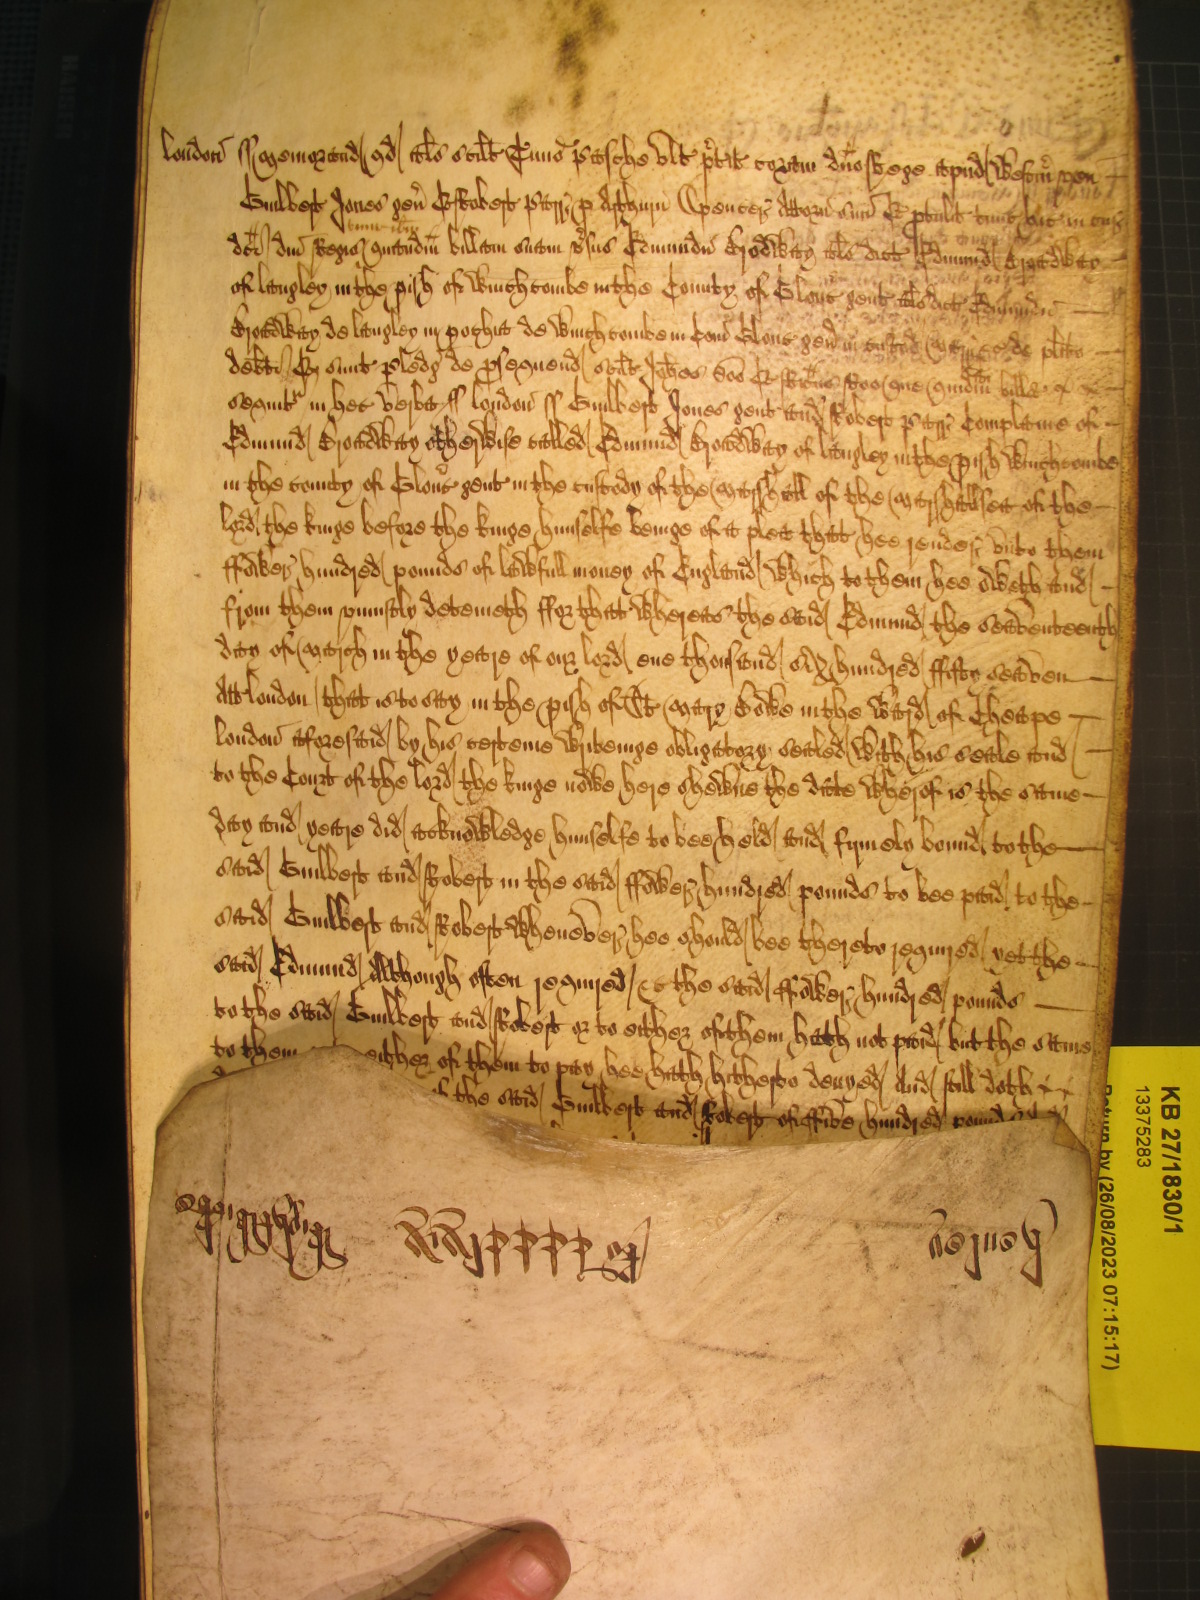 London ss Memorand qd als scilt Tino Pasche ult pterit coram dno Rege apud Westm ven
Guilbert Jones gen Et Robert Parr p Arthuru Spencer Attorn suu Et ptulit tunc hic in cur
dci dni Regis tunc ibm quandam billam suam vsus Edmundu Broadway als dict Edmund Broadway
of Langley in the pish of Winchcombe in the County of Glouc gent als dict Edmundu
Broadway de Langley in pochia de Winchcombe in Com Glouc gen in custod Marr &c de plito
debti Et sunt pledg de psequend scilt Johes Doo Et Ricus Roo que quidm billa
sequit in hec verba ss London ss Guilbert Jones gent and Robert Parr Complaine of
Edmund Broadway otherwise called Edmund Broadway of Langley in the pish Winchcombe
in the county of Glouc gent in the custody of the Marshall of the Marshallsea of the
lord the kinge before the kinge himselfe beinge of a plea that hee render unto them
ffower hundred pounds of lawfull money of England which to them hee oweth and
from them uniustly deteineth ffor that whereas the said Edmund the seaventeenth
day of March in the yeare of our lord one thousand six hundred fifty seaven
Att London that is to say in the pish of St Mary Bowe in the Ward of Cheape
London aforesaid by his certeine writeinge obligatory sealed with his seale and
to the Court of the lord the kinge nowe here shewne the date wherof is the same
day and yeare did acknowledge himselfe to bee held and firmely bound to the
said Guilbert and Robert in the said ffower hundred pounds to bee paid to the
said Guilbert and Robert whenever hee should bee thereto required yet the
said Edmund Although often required &c the said ffower hundred pounds
to the said Guilbert and Robert or to either of them hath not paid but the same
to them either of them to pay hee hath hitherto denyed And still doth
the said Guilbert and Robert of ffive hundred pounds
KB 27/1830/1
13375283
Return by (26/08/2023 07:15:17)